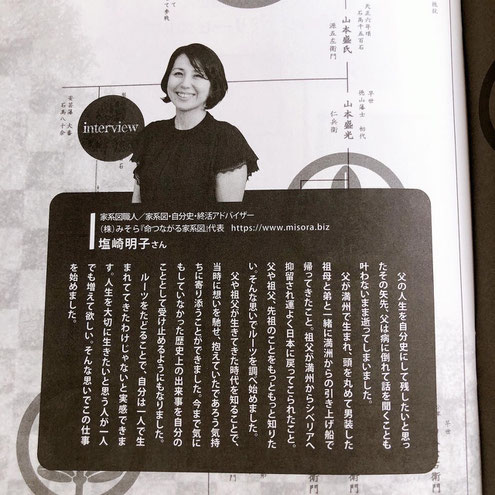 山本盛氏
源五左衛門
早世
徳山藩士 初代
山本盛光
仁兵衛
interview
家系図職人/家系図・自分史・終活アドバイザー
(株)みそら『命つながる家系図』代表 https://www.misora.biz
塩崎明子さん
父の人生を自分史にして残したいと思っ
たその矢先、父は病に倒れて話を聞くことも
叶わないまま逝ってしまいました。
父が満州で生まれ、頭を丸めて男装した
祖母と弟と一緒に満洲からの引き上げ船で
帰ってきたこと。祖父が満州からシベリアへ
抑留され運よく日本に戻ってこられたこと。
父や祖父、先祖のことをもっともっと知りた
い。そんな思いでルーツを調べ始めました。
父や祖父が生きてきた時代を知ることで、
当時に想いを馳せ、抱えていたであろう気持
ちに寄り添うことができました。今まで気に
もしていなかった歴史上の出来事を自分の
こととして受け止めるようにもなりました。
ルーツをたどることで、自分は一人で生
まれててきたわけじゃないと実感できま
す。人生を大切に生きたいと思う人が一人
でも増えて欲しい。そんな思いでこの仕事
を始めました。